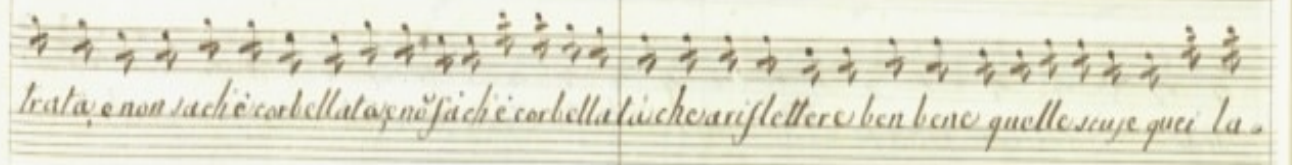 trata, e non sa ch'è corbellata, e nõ sà ch'è corbellata che a riflettere ben bene quelle scuse quei la=